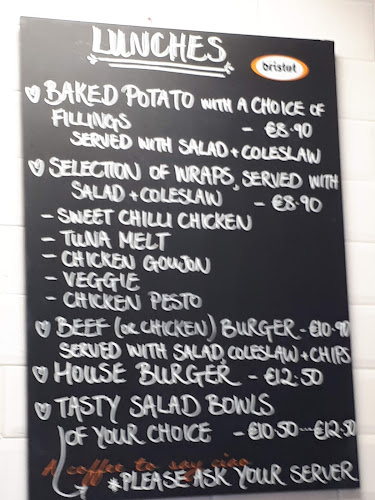 LUNCHES
bristot
BAKED POTATO WITH A CHOICE OF
FILLINGS - €8.90
SERVED WITH SALAD + COLESLAW
SELECTION OF WRAPS, SERVED WITH
SALAD + COLESLAW - €8.90
- SWEET CHILLI CHICKEN
- TUNA MELT
- CHICKEN GOUJON
- VEGGIE
- CHICKEN PESTO
BEEF (OR CHICKEN) BURGER - €10.90
SERVED WITH SALAD, COLESLAW + CHIPS
HOUSE BURGER - €12.50
TASTY SALAD BOWLS
OF YOUR CHOICE - €10.50 - €12.50
A coffee to say ciao
*PLEASE ASK YOUR SERVER